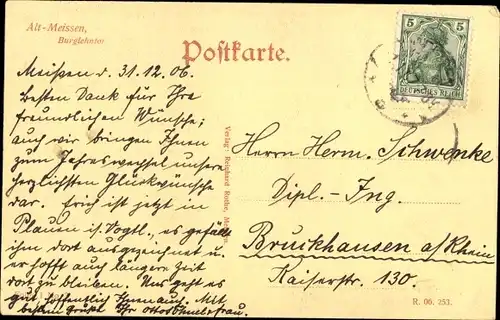 Alt-Meissen,
Burglehntor
Postkarte.
5 5
DEUTSCHES REICH
Meißen d. 31.12.06.
besten Dank für Ihre
freundlichen Wünsche;
auch wir bringen Ihnen
zum Jahreswechsel unsere
herzlichsten Glückwünsche
dar. Erich ist jetzt in
Plauen i. Vogtl., es gefällt
ihm dort ausgezeichnet u.
er hofft auch längere Zeit
dort zu bleiben. Uns geht es
gut, hoffentlich Ihnen auch. Mit
bestem Ihr
Verlag: Reinhard Rothe, Meissen.
Herrn Herm. Schwenke
Dipl.-Ing.
Bruckhausen a/Rhein
Kaiserstr. 130.
R. 06. 253.